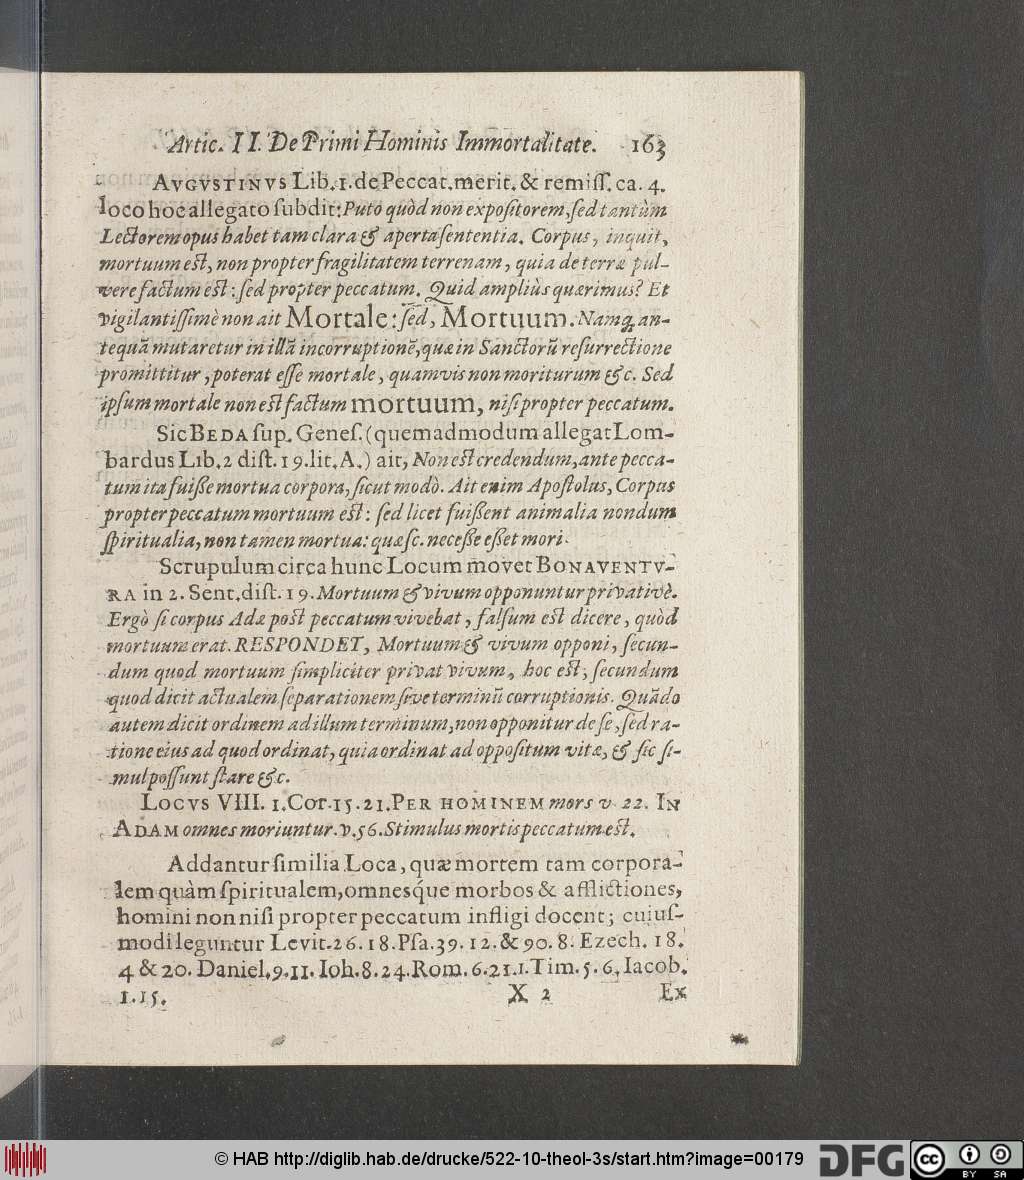 Artic. II. De Primi Hominis Immortalitate. 163
AVGVSTINVS Lib. 1. de Peccat. merit. & remiſſ. ca. 4.
loco hoc allegato ſubdit: Puto quòd non expoſitorem, ſed tantùm
Lectorem opus habet tam clara & aperta ſententia. Corpus, inquit,
mortuum eſt, non propter fragilitatem terrenam, quia de terræ pul-
vere factum eſt: ſed propter peccatum. Quid ampliùs quærimus? Et
vigilantiſſimè non ait Mortale: ſed, Mortuum. Namq; an-
tequã mutaretur in illã incorruptionẽ, quæ in Sanctorũ reſurrectione
promittitur, poterat eſſe mortale, quamvis non moriturum &c. Sed
ipſum mortale non eſt factum mortuum, niſi propter peccatum.
Sic BEDA ſup. Geneſ. (quemadmodum allegat Lom-
bardus Lib. 2 diſt. 19. lit. A.) ait, Non eſt credendum, ante pecca-
tum ita fuiße mortua corpora, ſicut modò. Ait enim Apoſtolus, Corpus
propter peccatum mortuum eſt: ſed licet fuißent animalia nondum
ſpiritualia, non tamen mortua: quæ ſc. neceße eßet mori.
Scrupulum circa hunc Locum movet BONAVENTV-
RA in 2. Sent. diſt. 19. Mortuum & vivum opponuntur privativè.
Ergò ſi corpus Adæ post peccatum vivebat, falſum eſt dicere, quòd
mortuum erat. RESPONDET, Mortuum & vivum opponi, ſecun-
dum quod mortuum ſimpliciter privat vivum, hoc eſt, ſecundum
quod dicit actualem ſeparationem ſive terminũ corruptionis. Quãdo
autem dicit ordinem ad illum terminum, non opponitur de ſe, ſed ra-
tione eius ad quod ordinat, quia ordinat ad oppoſitum vitæ, & ſic ſi-
mul poſſunt ſtare &c.
LOCVS VIII. 1. Cor. 15. 21. PER HOMINEM mors v 22. IN
ADAM omnes moriuntur. v. 56. Stimulus mortis peccatum eſt.
Addantur ſimilia Loca, quæ mortem tam corpora-
lem quàm ſpiritualem, omnesq́ue morbos & afflictiones,
homini non niſi propter peccatum infligi docent; cuiuſ-
modi leguntur Levit. 26. 18. Pſa. 39. 12. & 90. 8. Ezech. 18.
4 & 20. Daniel. 9. 11. Ioh. 8. 24. Rom. 6. 21. 1. Tim. 5. 6. Iacob.
1. 15.
X 2 Ex
© HAB http://diglib.hab.de/drucke/522-10-theol-3s/start.htm?image=00179
DFG
cc BY SA